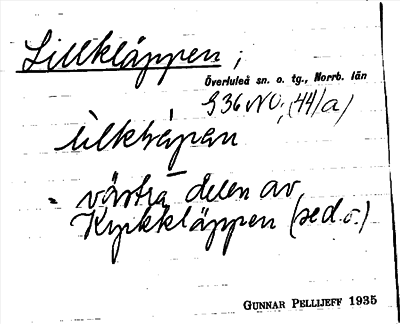 Lillkläppen;
Överluleå sn. o. tg., Norrb. län
S 36 NO; (44/a)
västra delen av
Kyrkkläppen (se d. o.)
GUNNAR PELLIJEFF 1935